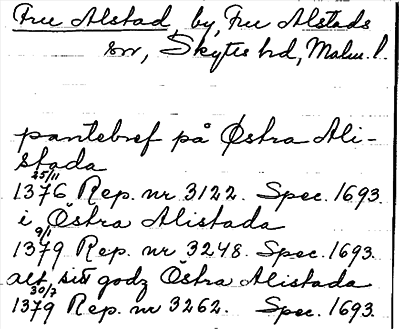 Fru Alstad, by, Fru Alstads
sn, Skytts hd, Malm. l.
pantebref på Østra Ali-
stada
25/11
1376 Rep. nr 3122. Spec. 1693.
i Östra Alistada
9/1
1379 Rep. nr 3248. Spec. 1693.
alt sit godz Östra Alistada
30/7
1379 Rep. nr 3262. Spec. 1693.